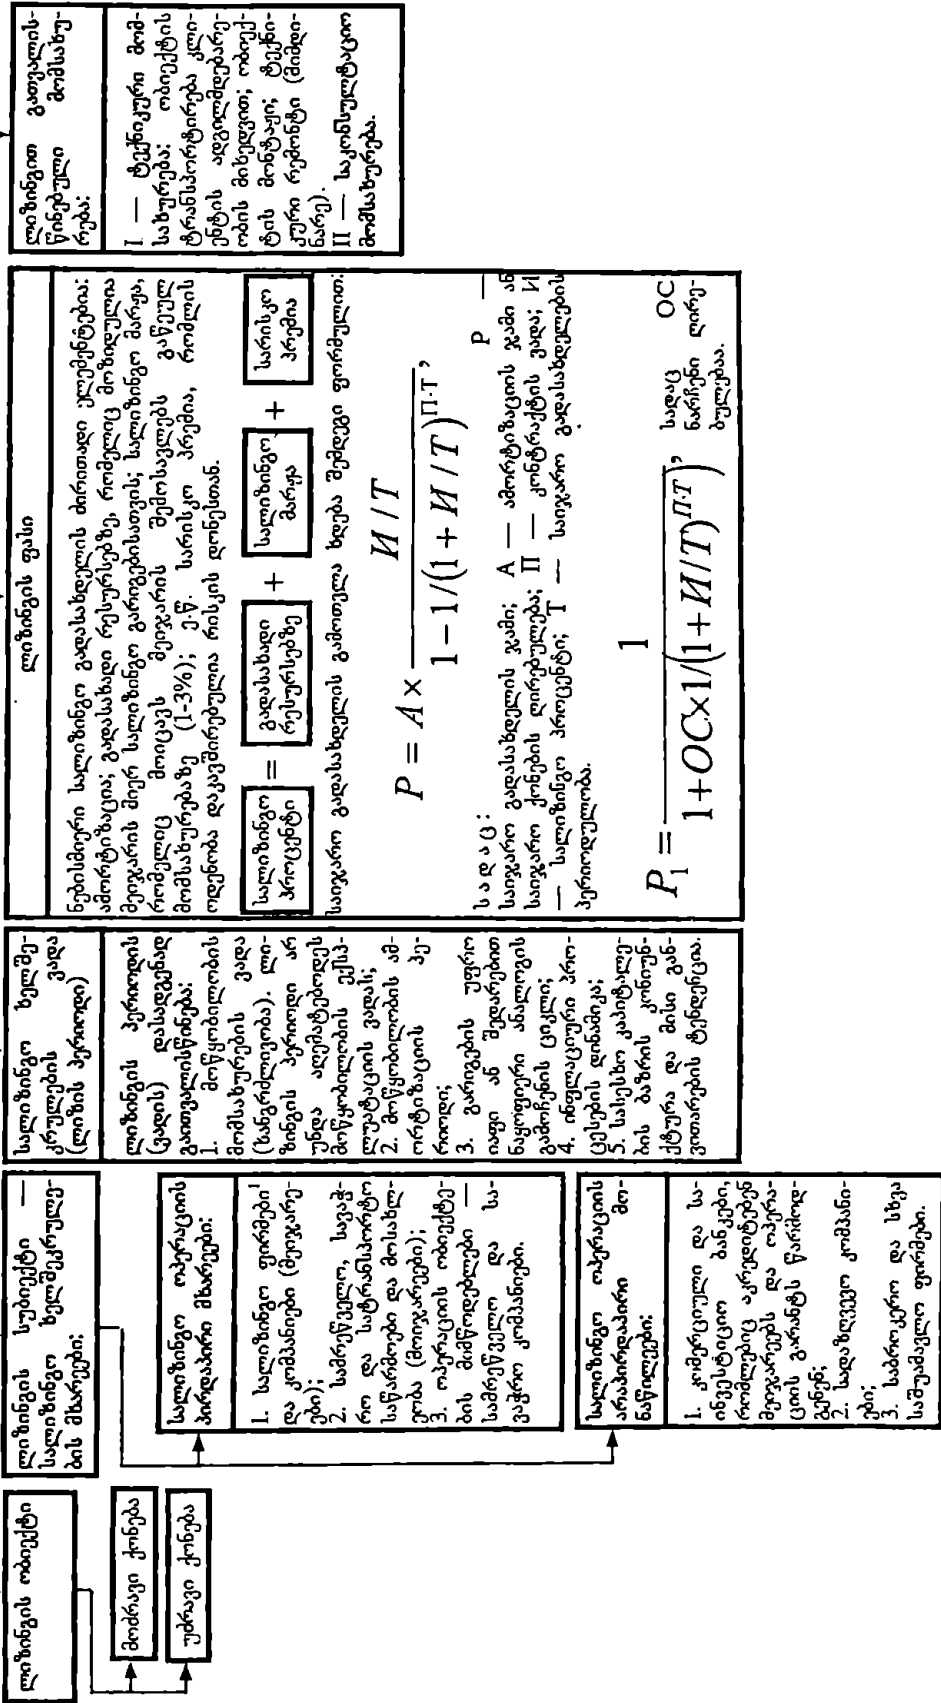 ლიზინგის ობიექტი
მოძრავი ქონება
უძრავი ქონება
ლიზინგის სუბიექტი —
სალიზინგო ხელშეკრულე-
ბის მხარეები:
სალიზინგო ოპერაციის
პირდაპირი მხარეები:
1. სალიზინგო ფირმები
და კომპანიები (მეიჯარე-
ები);
2. სამრეწველო, სავაჭ-
რო და სატრანსპორტო
საწარმოები და მოსახლ-
ეობა (მოიჯარეები);
3. ოპერაციის ობიექტე-
ბის მიმწოდებლები —
სამრეწველო და სა-
ვაჭრო კომპანიები.
სალიზინგო ოპერაციის
არაპირდაპირი მო-
ნაწილეები:
1. კომერციული და სა-
ინვესტიციო ბანკები,
რომლებიც აკრედიტებენ
მეიჯარეებს და ოპერა-
ციის გარანტს წარმოად-
გენენ;
2. სადაზღვევო კომპანი-
ები;
3. საბროკერო და სხვა
საშუამავლო ფირმები.
სალიზინგო ხელშე-
კრულების ვადა
(ლიზის პერიოდი)
ლიზინგის პერიოდის
(ვადის) დასადგენად
გაითვალისწინება:
1. მოწყობილობის
მომსახურების ვადა
(ხანგრძლივობა). ლი-
ზინგის პერიოდი არ
უნდა აღემატებოდეს
მოწყობილობის ექსპ-
ლუატაციის ვადას;
2. მოწყობილობის ამ-
ორტიზაციის პე-
რიოდი;
3. გარიგების უფრო
იაფი ან შედარებით
ნაყოფიერი ანალოგის
გამოჩენის ციკლი;
4. ინფლაციური პრო-
ცესების დინამიკა;
5. სასესხო კაპიტალე-
ბის ბაზრის კონიუნ-
ქტურა და მისი გან-
ვითარების ტენდენცია.
ლიზინგის ფასი
ნებისმიერი სალიზინგო გადასახდელის ძირითადი ელემენტებია:
ამორტიზაცია; გადასახადი რესურსებზე, რომელიც მოზიდულია
მეიჯარის მიერ სალიზინგო გარიგებისათვის; სალიზინგო მარჟა,
რომელიც მოიცავს მეიჯარის შემოსავლებს გაწეულ
მომსახურებაზე (1-3%); ე.წ. სარისკო პრემია, რომლის
ოდენობა დაკავშირებულია რისკის დონესთან.
სალიზინგო პროცენტი = გადასახადი რესურსებზე + სალიზინგო მარჟა + სარისკო პრემია
საიჯარო გადასახდელის გამოთვლა ხდება შემდეგი ფორმულით:
P = A × И / Т / 1−1/(1+И/Т)^П·Т,
სადაც: P —
საიჯარო გადასახდელის ჯამი; A — ამორტიზაციის ჯამი ან
საიჯარო ქონების ღირებულება; П — კონტრაქტის ვადა; И
— სალიზინგო პროცენტი; Т — საიჯარო გადასახდელების
პერიოდულობა.
P₁ = 1 / 1+OC×1/(1+И/Т)^П·Т, სადაც OC
ნარჩენი ღირე-
ბულებაა.
ლიზინგით გათვალის-
წინებული მომსახუ-
რება:
I — ტექნიკური მომ-
სახურება: ობიექტის
ტრანსპორტირება კლი-
ენტის ადგილმდებარე-
ობის მიხედვით; ობიექ-
ტის მონტაჟი; ტექნი-
კური რემონტი (მიმდი-
ნარე).
II — საკონსულტაციო
მომსახურება.